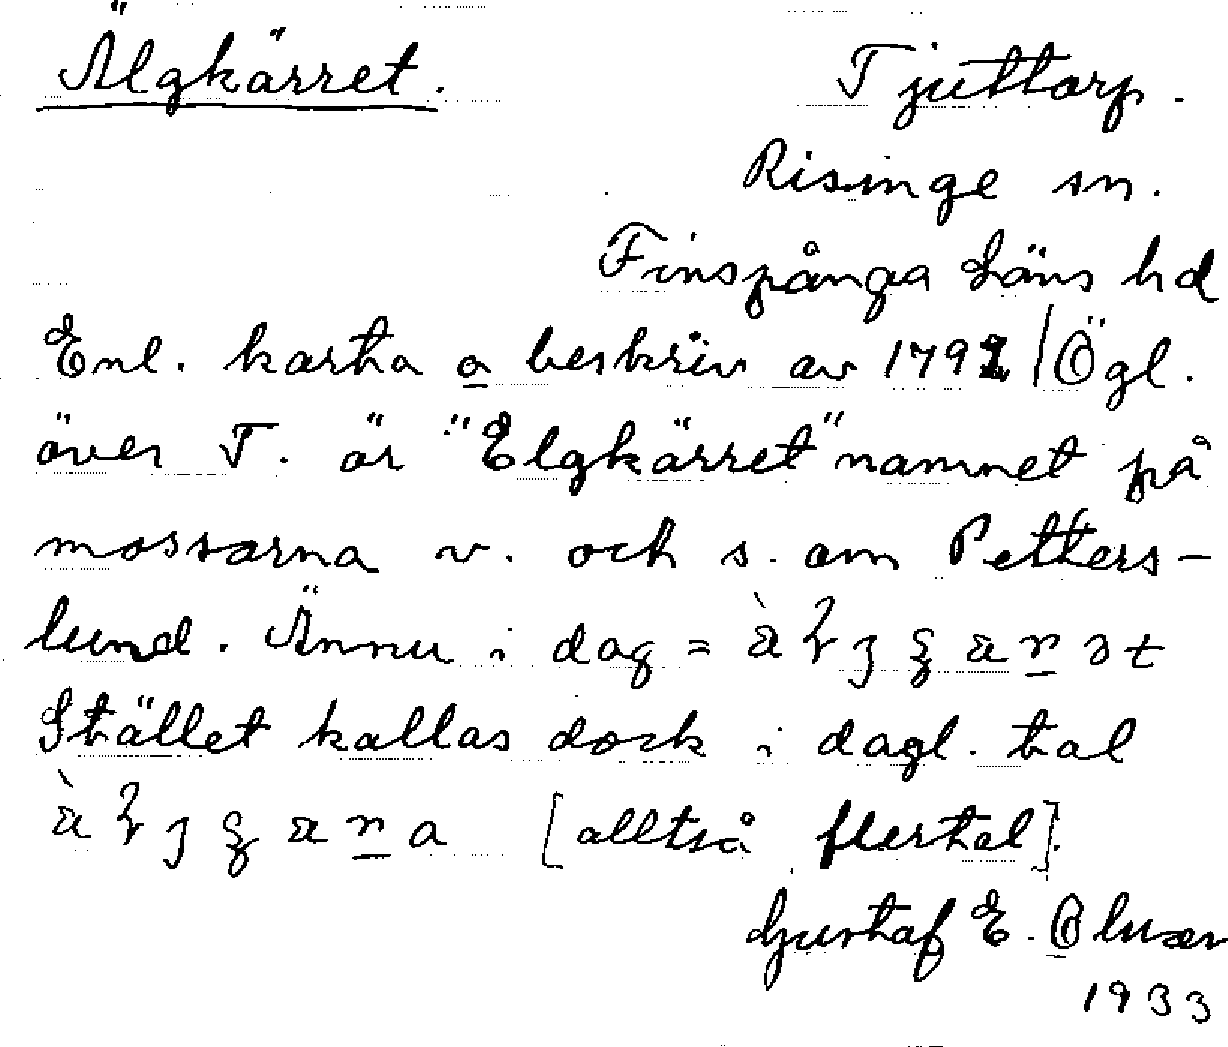 Älgkärret. Tjuttorp.
Risinge sn.
Finspånga läns hd
Enl. karta o beskriv av 1792 /Ögl.
över T. är "Elgkärret" namnet på
mossarna v. och s. om Petters-
lund. Ännu i dag =
Stället kallas dock i dagl. tal
[alltså flertal].
Gustaf E. Olsson
1933